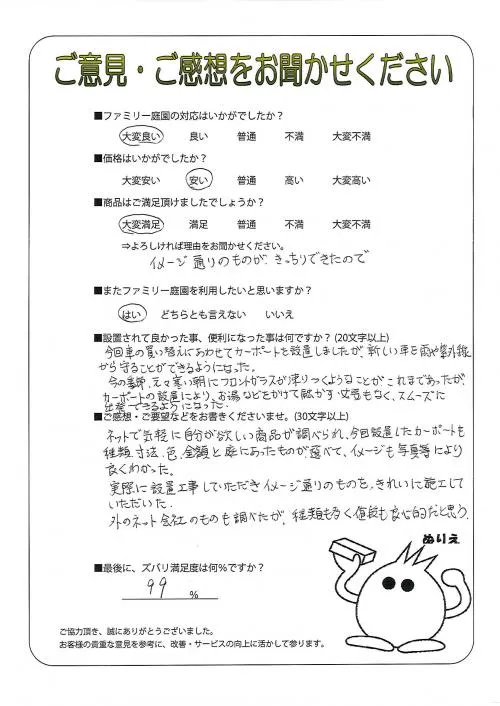 ご意見・ご感想をお聞かせください
■ファミリー庭園の対応はいかがでしたか？
大変良い 良い 普通 不満 大変不満
■価格はいかがでしたか？
大変安い 安い 普通 高い 大変高い
■商品はご満足頂けましたでしょうか？
大変満足 満足 普通 不満 大変不満
⇒よろしければ理由をお聞かせください。
イメージ通りのものが、きっちりできたので
■またファミリー庭園を利用したいと思いますか？
はい どちらとも言えない いいえ
■設置されて良かった事、便利になった事は何ですか？(20文字以上)
今回車の買い替えにあわせてカーポートを設置しましたが、新しい車を雨や紫外線
から守ることができるようになった。
今の季節、元々寒い朝にフロントガラスが凍りつくようなことがこれまであったが、
カーポートの設置により、お湯などをかけて融かす 必要もなく、スムーズに
出発できるようになった。
■ご感想・ご要望などをお書きくださいませ。(30文字以上)
ネットで気軽に自分が欲しい商品が調べられ、今回設置したカーポートも
種類、寸法、色、金額と庭にあったものが選べて、イメージも写真等により
良くわかった。
実際に設置工事していただきイメージ通りのものを、きれいに施工して
いただいた。
外のネット会社のものも調べたが、種類も多く値段も良心的だと思う。
ぬりえ
■最後に、ズバリ満足度は何％ですか？
99 ％
ご協力頂き、誠にありがとうございました。
お客様の貴重な意見を参考に、改善・サービスの向上に活かして参ります。